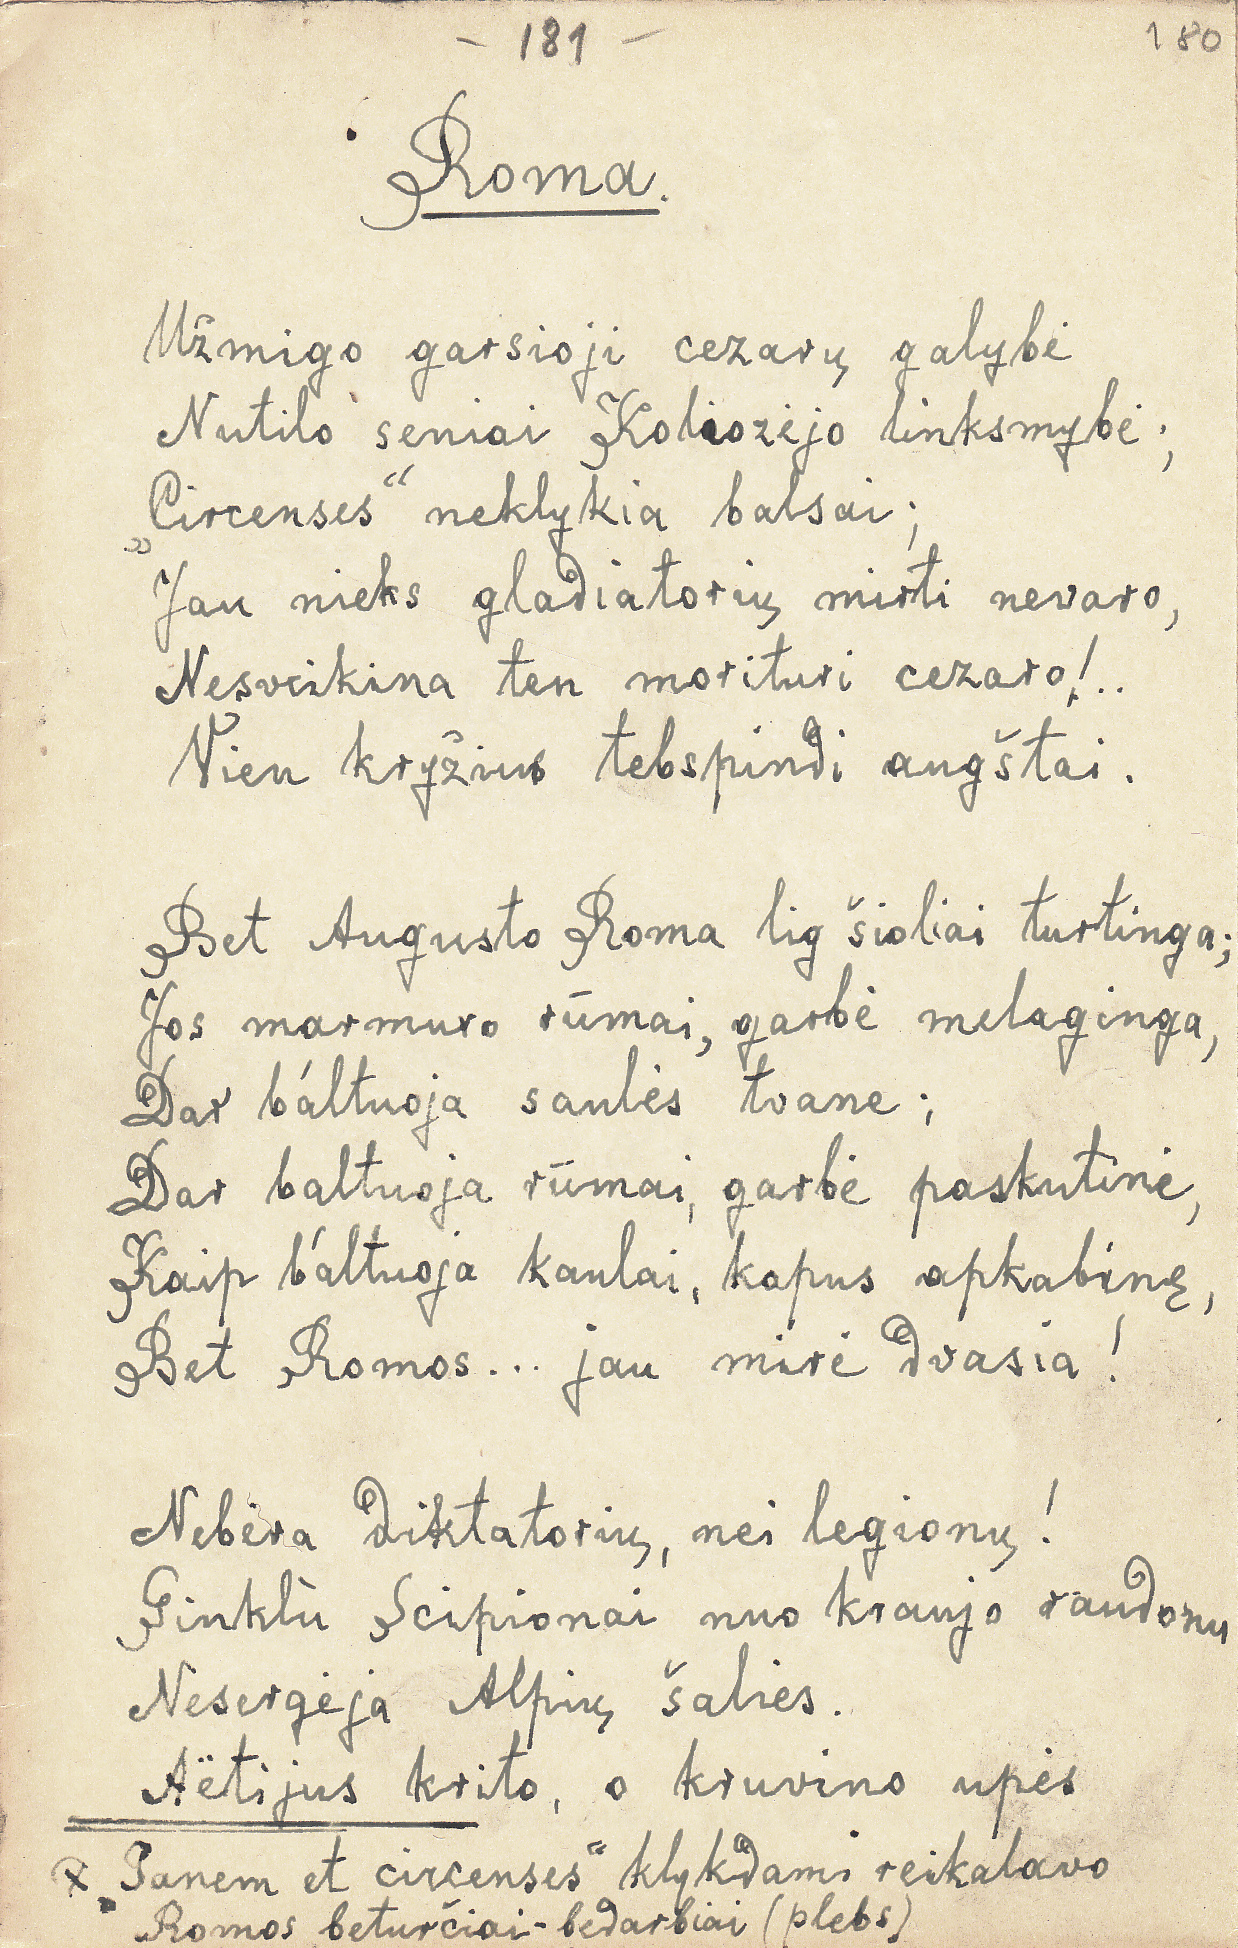 - 181 -
180
Roma.
Užmigo garsioji cezarų galybė
Nutilo seniai Koliozėjo linksmybė;
„Circenses“ neklykia balsai;
Jau nieks gladiatorių mirti nevaro,
Nesveikina ten morituri cezaro!..
Vien kryžius tebspindi augštai.
Bet Augusto Roma lig šioliai turtinga;
Jos marmuro rūmai, garbė melaginga,
Dar báltuoja saulės tvane;
Dar baltuoja rūmai, garbė paskutinė,
Kaip báltuoja kaulai, kapus apkabinę,
Bet Romos... jau mirė dvasia!
Nebėra diktatorių, nei legionų!
Ginklù Scipionai nuo kraujo raudonu
Nesergėja Alpių šalies.
Aëtijus krito, o kruvino upės
x „Panem et circenses“ klykdami reikalavo
Romos beturčiai-bedarbiai (plebs)